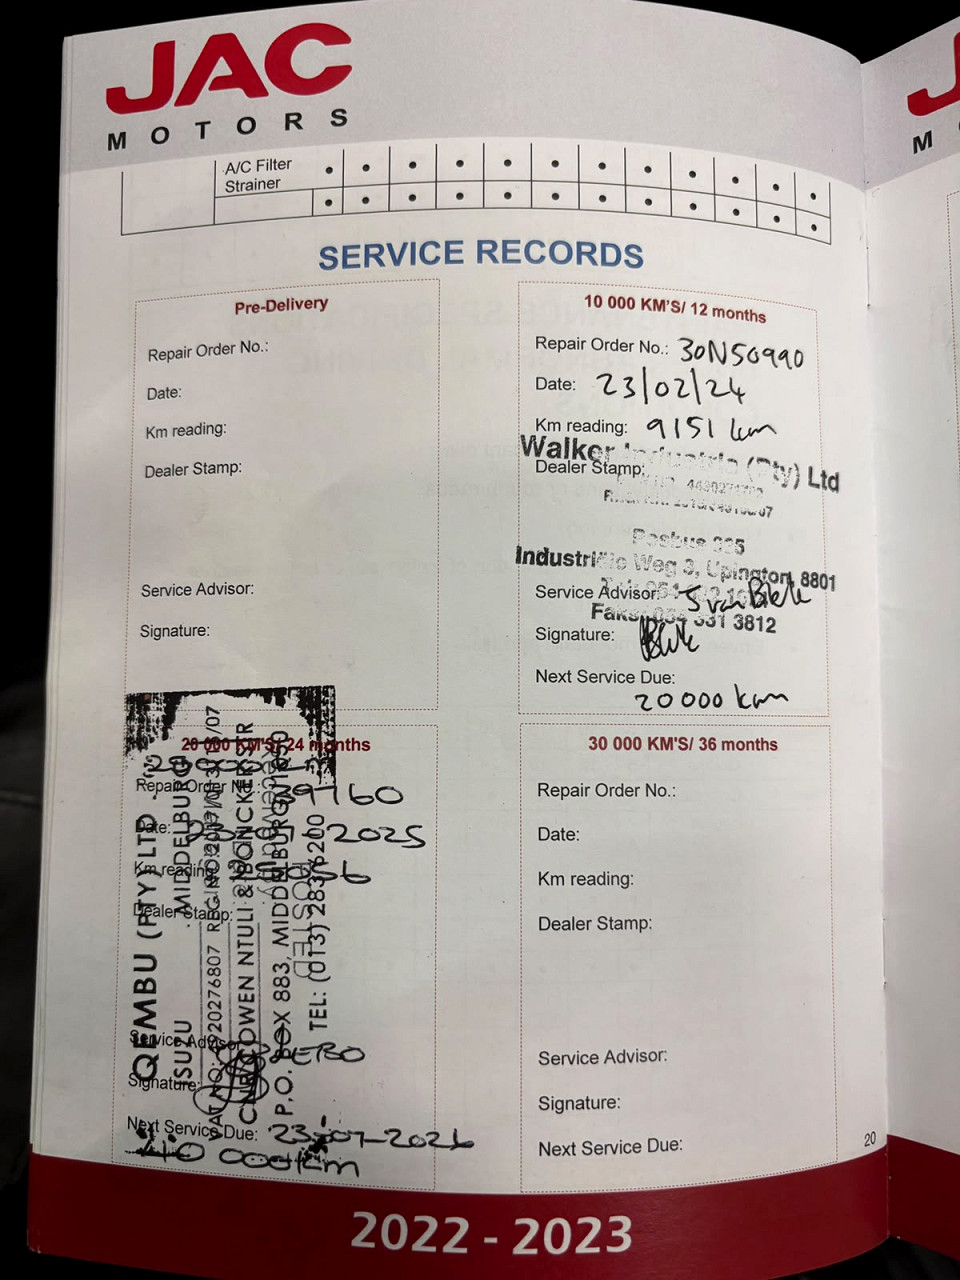 JAC
MOTORS
A/C Filter
Strainer
SERVICE RECORDS
Pre-Delivery
Repair Order No.:
Date:
Km reading:
Dealer Stamp:
Service Advisor:
Signature:
10 000 KM'S/ 12 months
Repair Order No.: 30N50990
Date: 23/02/24
Km reading: 9151 km
Walker Industrie (Pty) Ltd
Dealer Stamp:
Posbus 335
Industrieile Weg 3, Upington, 8801
Service Advisor:
Faks: 054 331 3812
Signature:
Next Service Due:
20 000 km
20 000 KM'S/ 24 months
Repair Order No.: 39760
Date: 2025
Km reading:
Dealer Stamp:
Service Advisor:
Signature:
Next Service Due: 23-07-2026
40 000km
QEMBU (PTY) LTD
ISUZU MIDDELBURG
VAT NO: 4920276807 REG NO:
CNR COWEN NTULI & DONCKER STR
P.O. BOX 883, MIDDELBURG, 1050
TEL: (013) 283 6200
30 000 KM'S/ 36 months
Repair Order No.:
Date:
Km reading:
Dealer Stamp:
Service Advisor:
Signature:
Next Service Due:
20
2022 - 2023